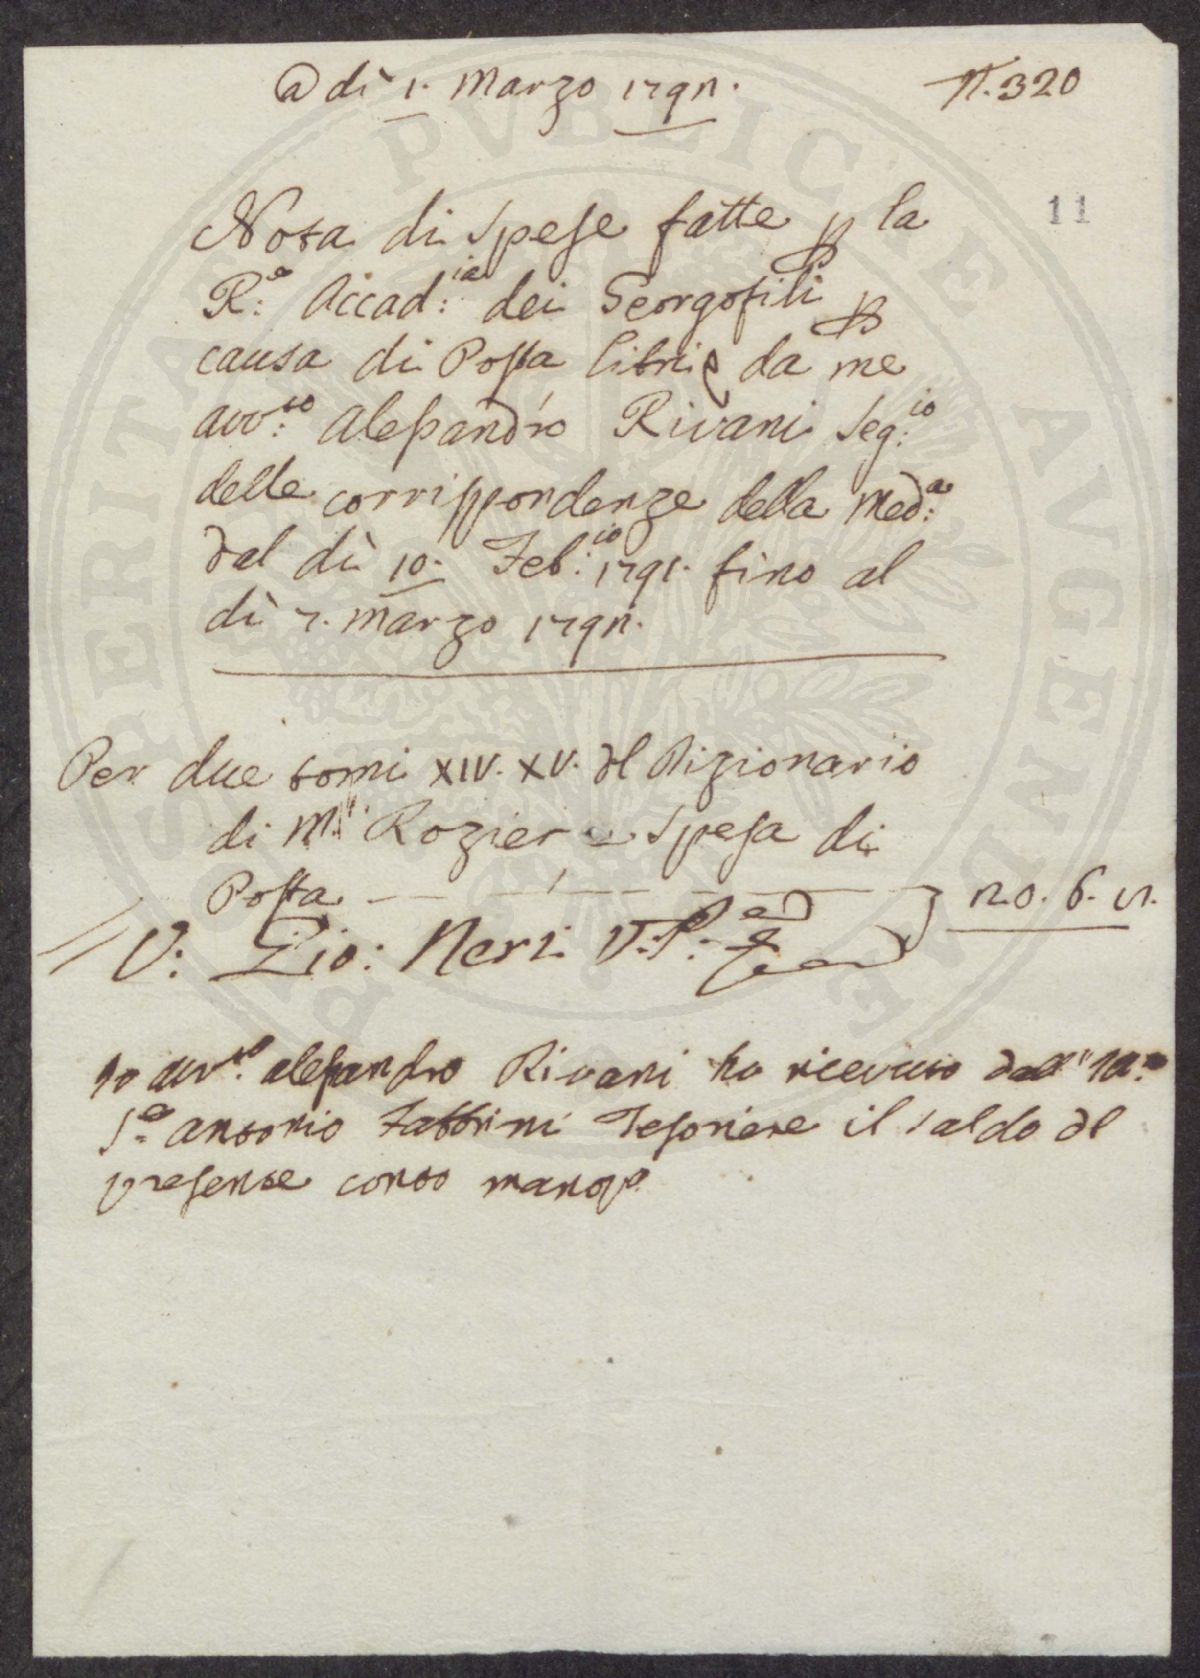 @ dì 1. Marzo 1792.
N. 320
11
Nota di Spese fatte p la
R:a Accad:ia dei Georgofili p
causa di Posta Libri e da me
Avv:to Alessandro Rivani Seg:io
delle corrispondenze della Med:a
dal dì 10. Feb:io 1791. fino al
dì 1. Marzo 1792.
Per due tomi XIV. XV. del Dizionario
di M:r Rozier e Spesa di
Posta
V: Gio: Neri V. P:
Io Avv:to Alessandro Rivani ho ricevuto dall'
S:e Antonio Fabbrini Tesoriere il saldo del
presente conto mano pa
PROSPERITATI PVBLICAE AVGENDAE